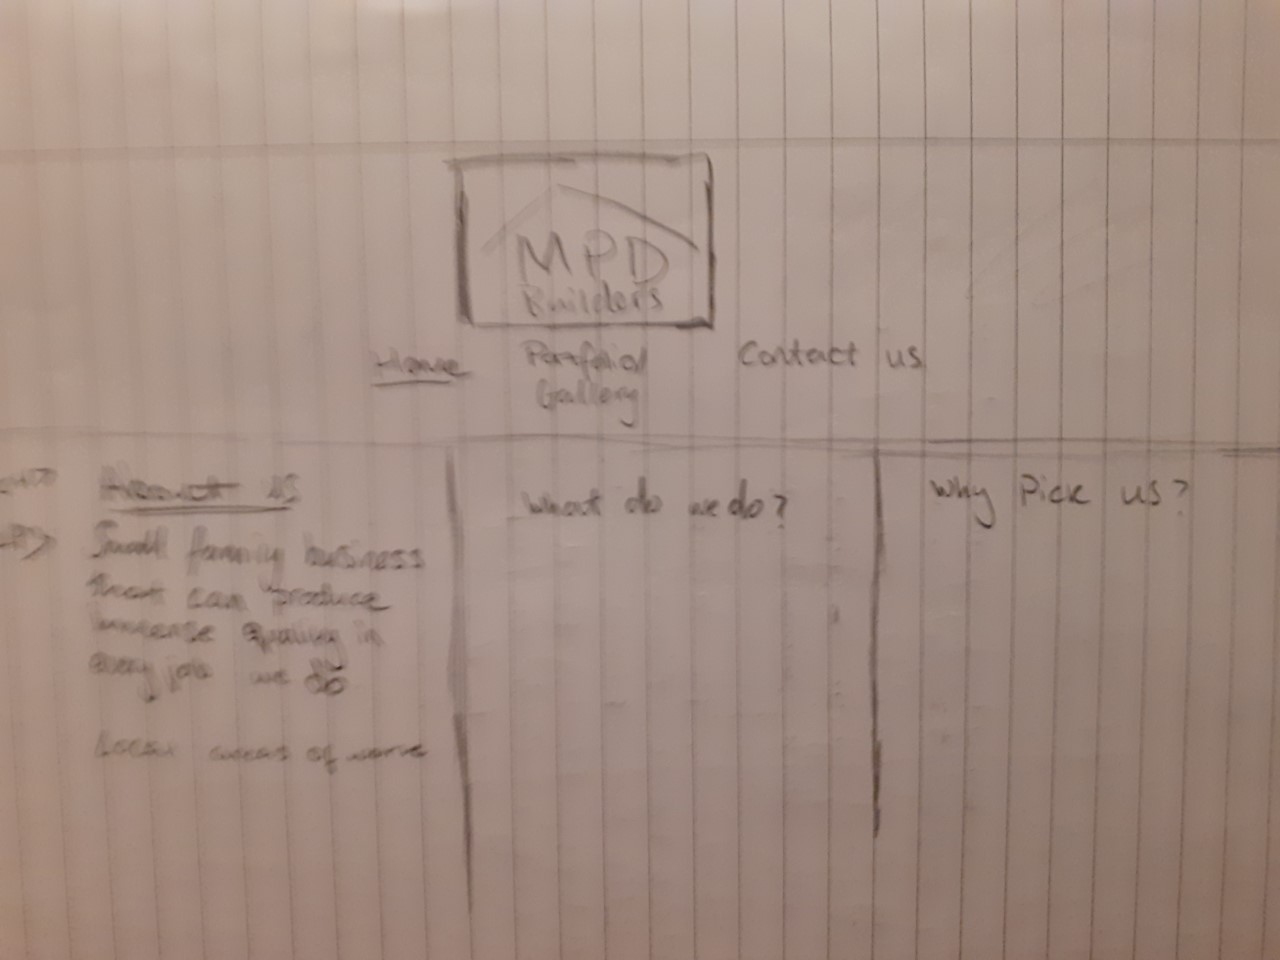 MPD
Builders
Home
Portfolio/
Gallery
Contact us
About us
Small family business
that can produce
immense quality in
every job we do
Local areas of work
What do we do?
Why Pick us?